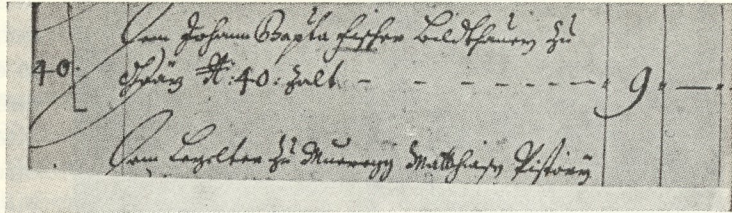 Dem Johann Bapta Fischer Bildthauer zu
40. Gräz N: 40: zalt - - - - - - - 9 „ — „
Dem Legelten zu Mueregg Matthiaß Pistory